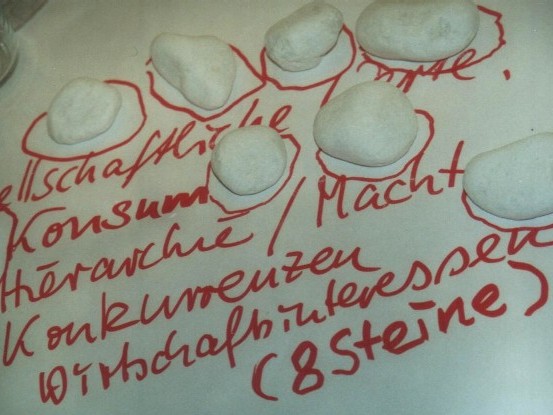 ellschaftliche
Konsum
Hierarchie / Macht
Konkurrenzen
Wirtschaftsinteressen
(8 Steine)